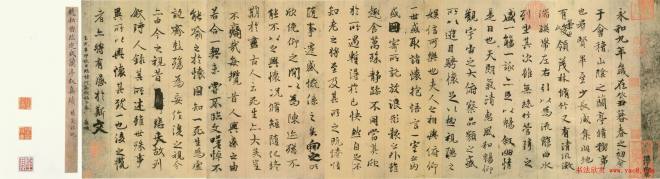 永和九年歲在癸丑暮春之初會
于會稽山陰之蘭亭脩稧事
也羣賢畢至少長咸集此地
有峻領茂林脩竹又有清流激
湍暎帶左右引以為流觴曲水
列坐其次雖無絲竹管弦之
盛一觴一詠亦足以暢敘幽情
是日也天朗氣清惠風和暢仰
觀宇宙之大俯察品類之盛
所以遊目騁懷足以極視聽之
娛信可樂也夫人之相與俯仰
一世或取諸懷抱悟言一室之內
或因寄所託放浪形骸之外雖
趣舍萬殊靜躁不同當其欣
於所遇蹔得於己快然自足不
知老之將至及其所之既惓情
隨事遷感慨係之矣向之所
欣俛仰之閒以為陳迹猶不
能不以之興懷況脩短隨化終
期於盡古人云死生亦大矣豈
不痛哉每攬昔人興感之由
若合一契未嘗不臨文嗟悼不
能喻之於懷固知一死生為虛
誕齊彭殤為妄作後之視今
亦由今之視昔悲夫故列
敘時人錄其所述雖世殊事
異所以興懷其致一也後之攬
者亦將有感於斯文
书法欣赏
www.yac8.com